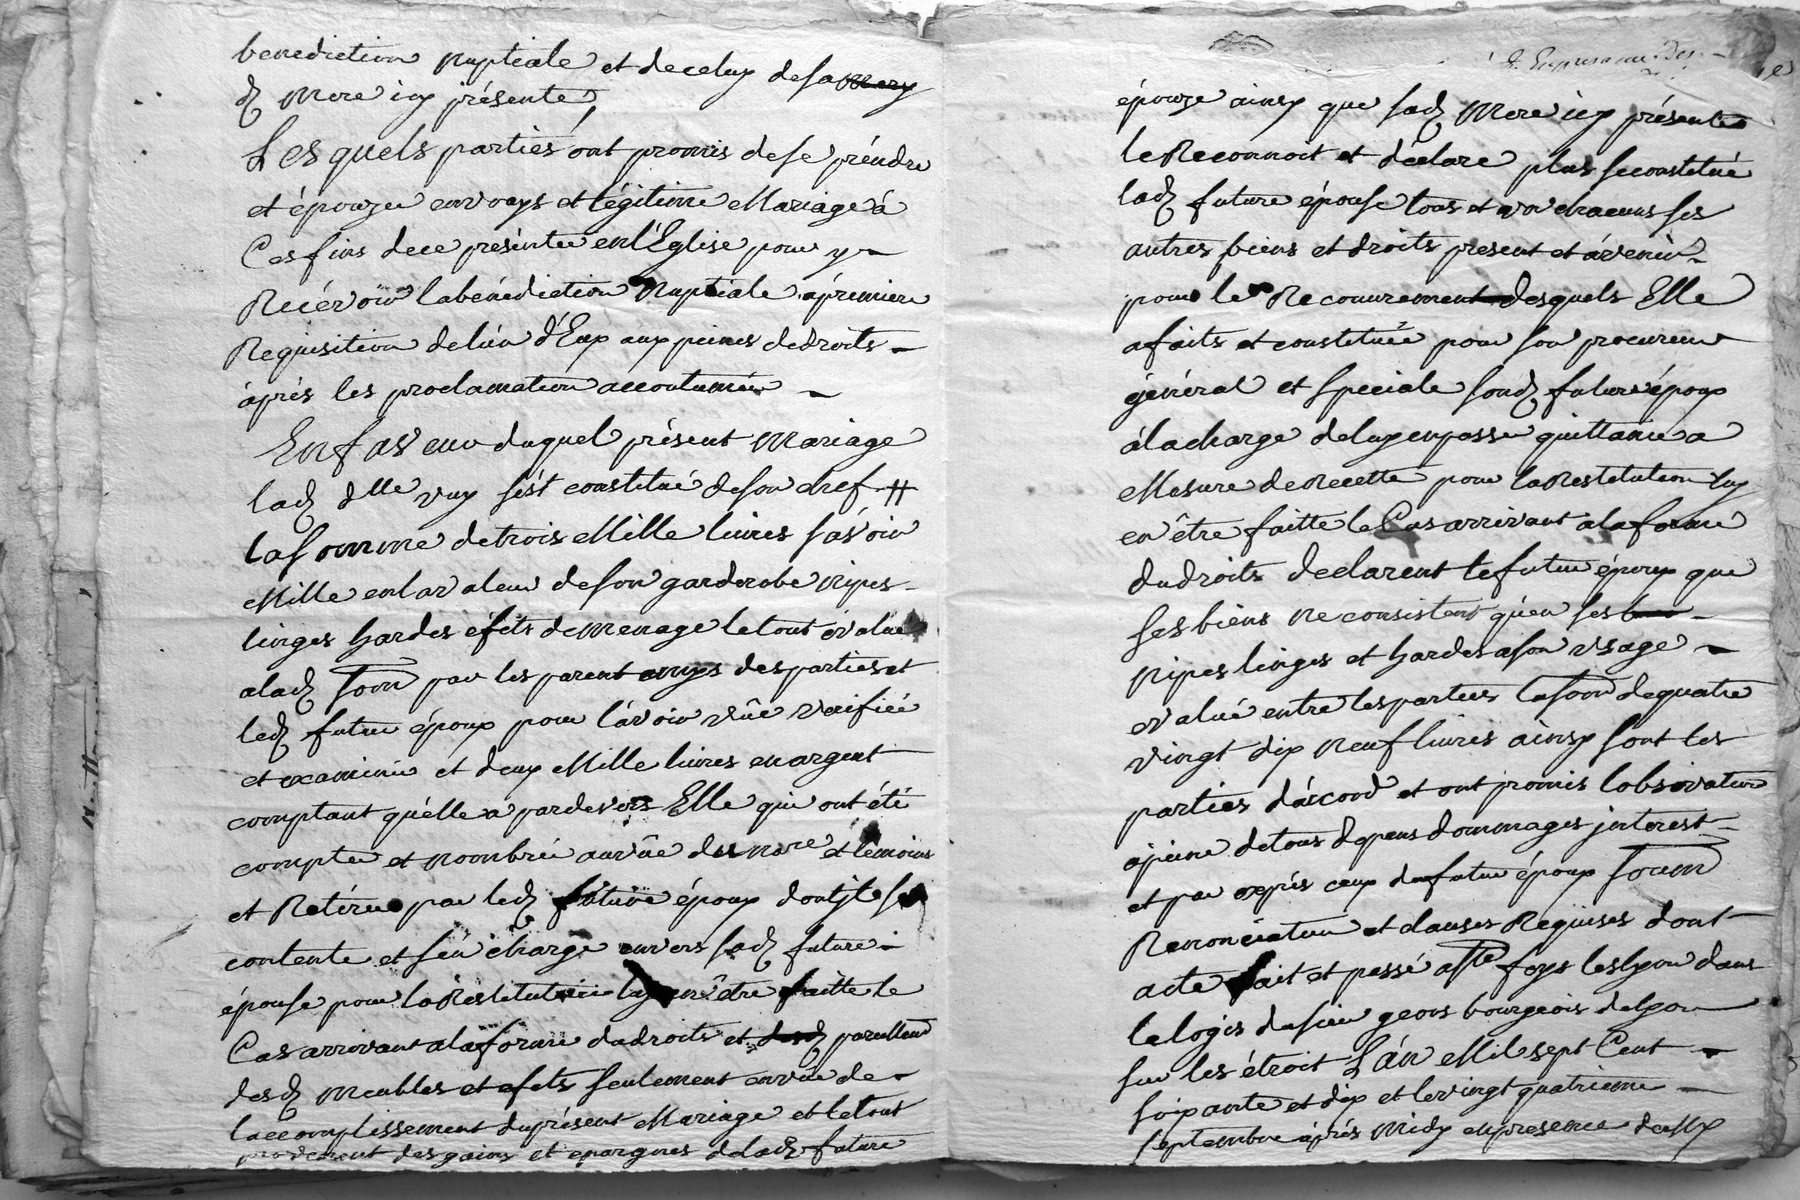 benediction nuptiale et de celuy de sa mery
dᵗ Mere icy présente,
Lesquels parties ont promis de se préndre
et épouzer en vrays et légitime Mariage á
Ces fins de ce présenter en l'Église pour y
Recévoir la bénédiction Nuptiale á prémiere
Requisition de lún d'Eux aux peines de droits
áprés les proclamation accoutumée
En faveur duquel présent Mariage
ladᵗ dlle vuy sést constitué de son chef #
la somme de trois Mille livres sávoir
Mille en la valeur de son garderobe nipes
linges hardes éféts de menage le tout évalué
a ladᵗ som par les parent amys des parties et
ledᵗ futur époux pour lávoir vûe verifiée
et examinée et deux Mille livres en argent
comptant quélle a par devers Elle qui ont été
comptée et nombrée au vûe du nore et témoins
et Retirée par ledᵗ future époux dont jl se
contente et sén charge envers sadᵗ future
épouse pour la Restitution luy en être faitte le
Cas arrivant a la forme du droits et
desdᵗ Meubles et efets seulement en vûe de
laccomplissement du présent Mariage et le tout
provenant des gains et epargnes de ladᵗ future
épouze ainsy que sadᵗ Mere icy présente
le Reconnoit et déclare plus se constitué
ladᵗ future épouse tous et un chacuns ses
autres biens et droits present et ávenir
pour le Recouvrement desquels Elle
a faits et constituée pour son procureur
général et speciale sondᵗ future époux
á la charge de luy en passer quittance a
Mesure de Recette pour la Restitution luy
en être faitte le Cas arrivant a la forme
du droits declarent le futur époux que
ses biens ne consistent quén ses
nipes linges et hardes a son usage
evalué entre les parties la som de quatre
vingt dix neuf livres ainsy sont les
parties dáccord et ont promis lobservation
apeine de tous depens dommages jnterest
et par exprés ceux du futur époux soum
Renonciation et clauses Requises dont
acte fait et passé a ste foys les lyon dans
le logis du sieur geons bourgeois de lyon
sur les étroit Lán Mil sept Cent
soixante et dix et le vingt quatrieme
septembre áprés Midy en presence de